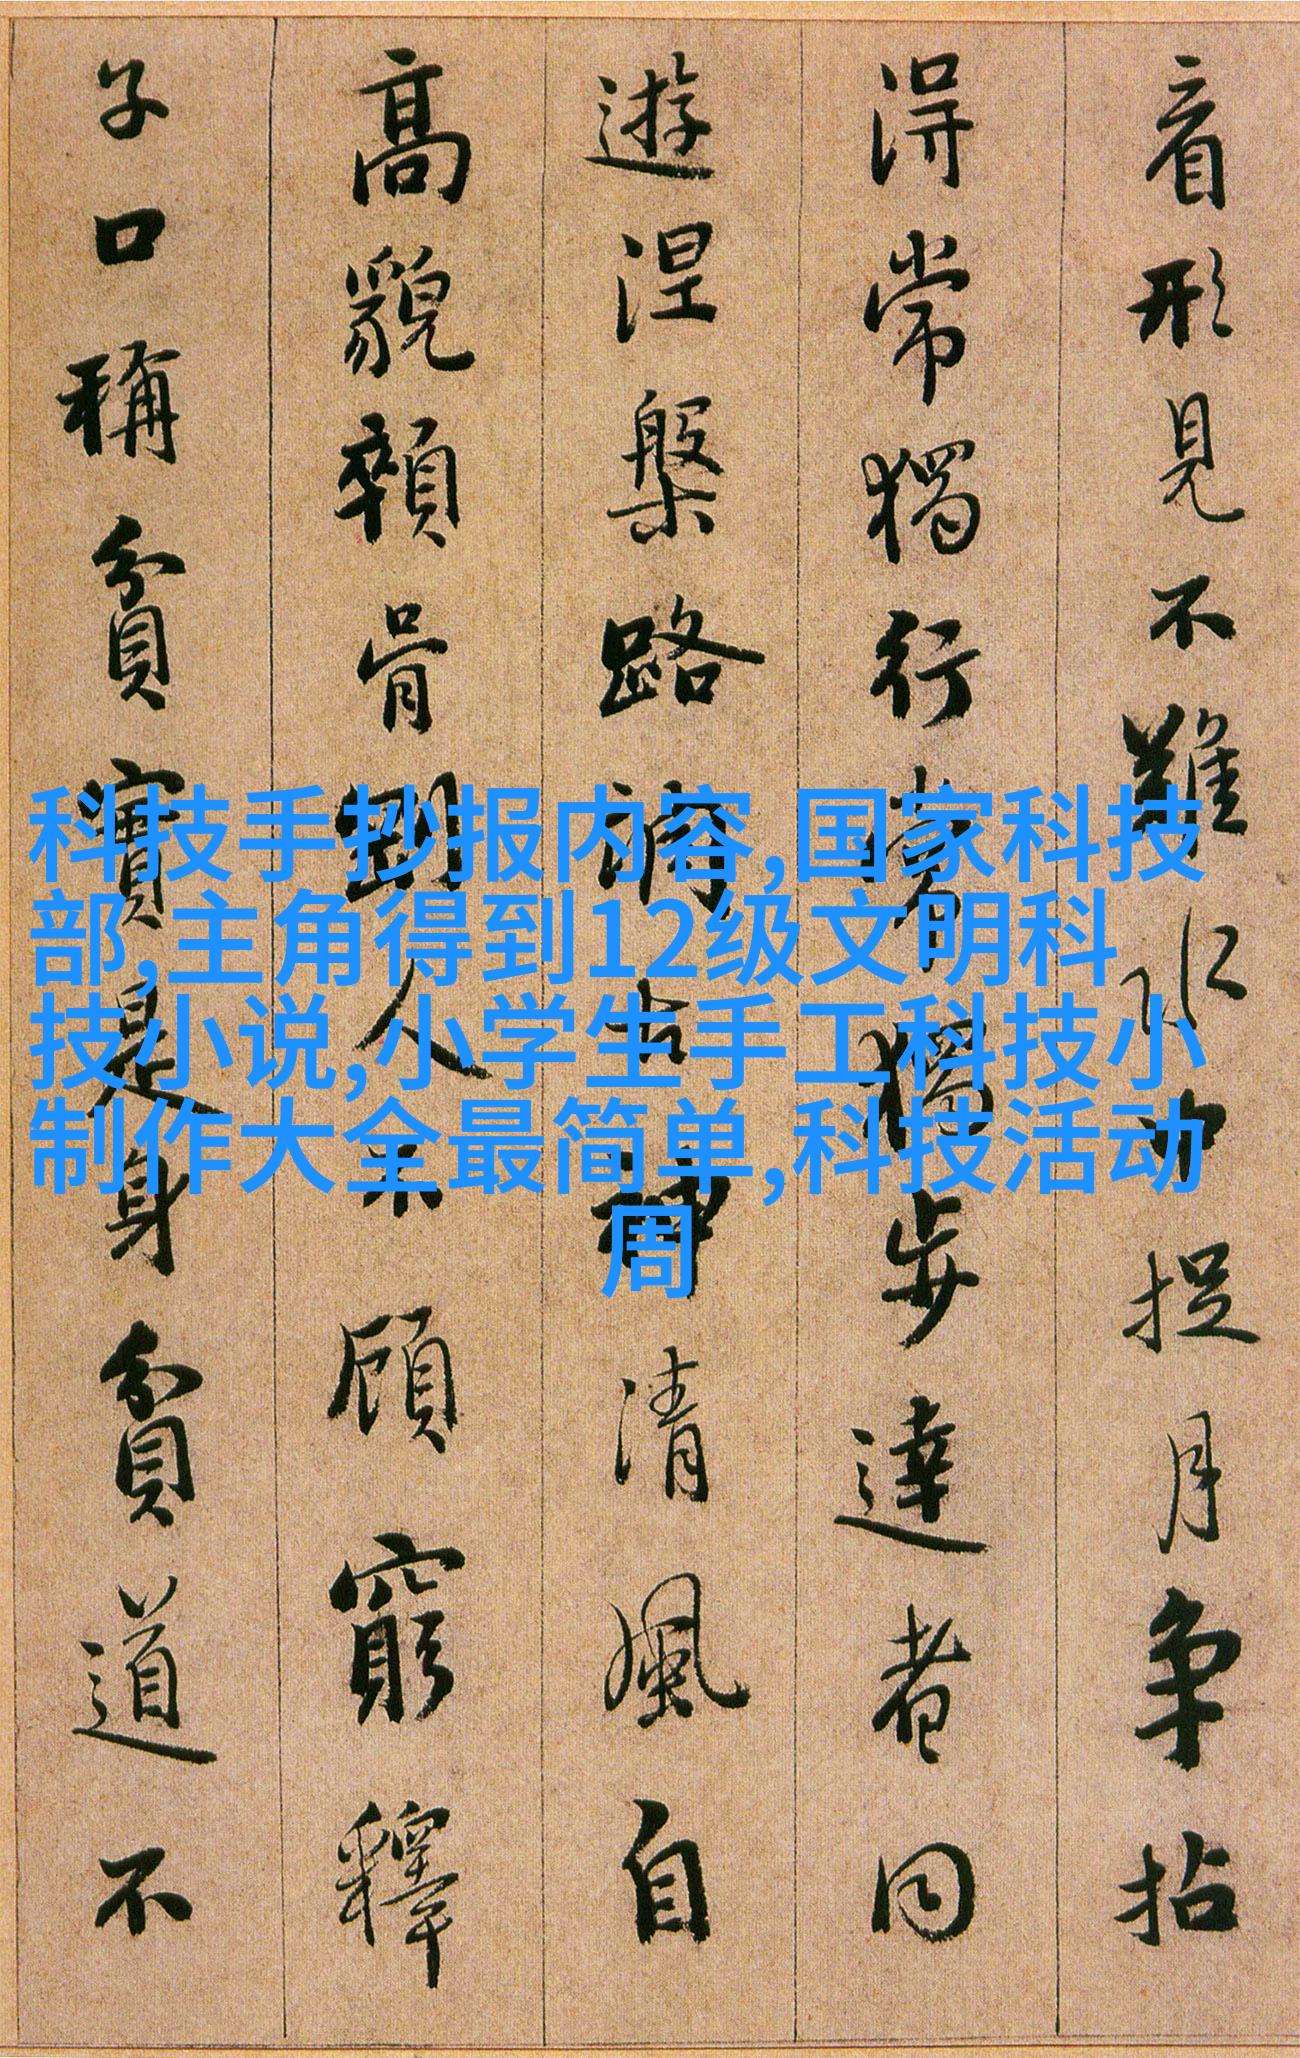 看形見不難水中捉月爭拈
得常獨行常獨步達者同
遊涅槃路調古神清風自
高貌顇骨剛人不顧窮釋
子口稱貧實是身貧道不
科技手抄报内容,国家科技
部,主角得到12级文明科
技小说,小学生手工科技小
制作大全最简单,科技活动
周